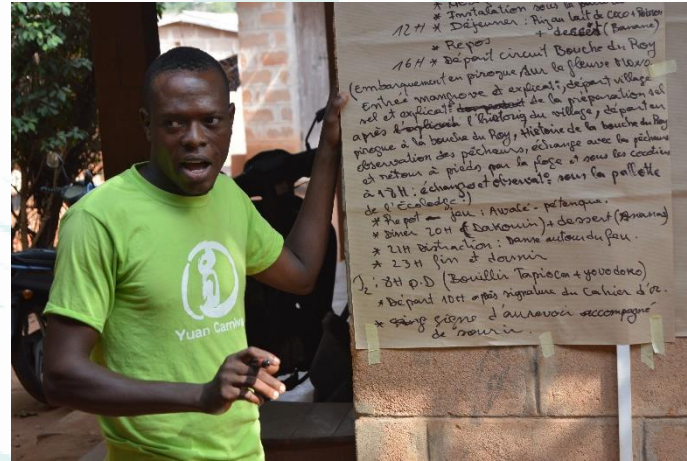 * Installation sous la
12H * Déjeuner : Riz au lait de coco + Poisson
+ dessert (Banane)
* Repos
16H * Départ circuit Bouche du Roy
(embarquement en pirogue sur la fleuve Mono
Entrée mangrove et explicat°, départ village
sel et explicat° de la préparation sel
après l'histoire du village, départ en
pirogue à la bouche du Roy, Histoire de la bouche du Roy
observation des pêcheurs, échange avec les pêcheurs
et retour à pieds par la plage et sous les cocotiers
à 18H : échange et observat° sous la paillotte
de l'Ecolodge)
* Repot - jeu : Awalé - pétanque.
* Diner 20H (Dakouin) + dessert (Ananas)
* 21H Distraction : Danse autour du feu.
* 23H fin et dormir
J2 : 8H P.D (Bouillir Tapioca + yovodoko)
* Départ 10H après signature du Cahier d'or.
* signe d'aurevoir accompagné
de sourir.
Yuan Carnival